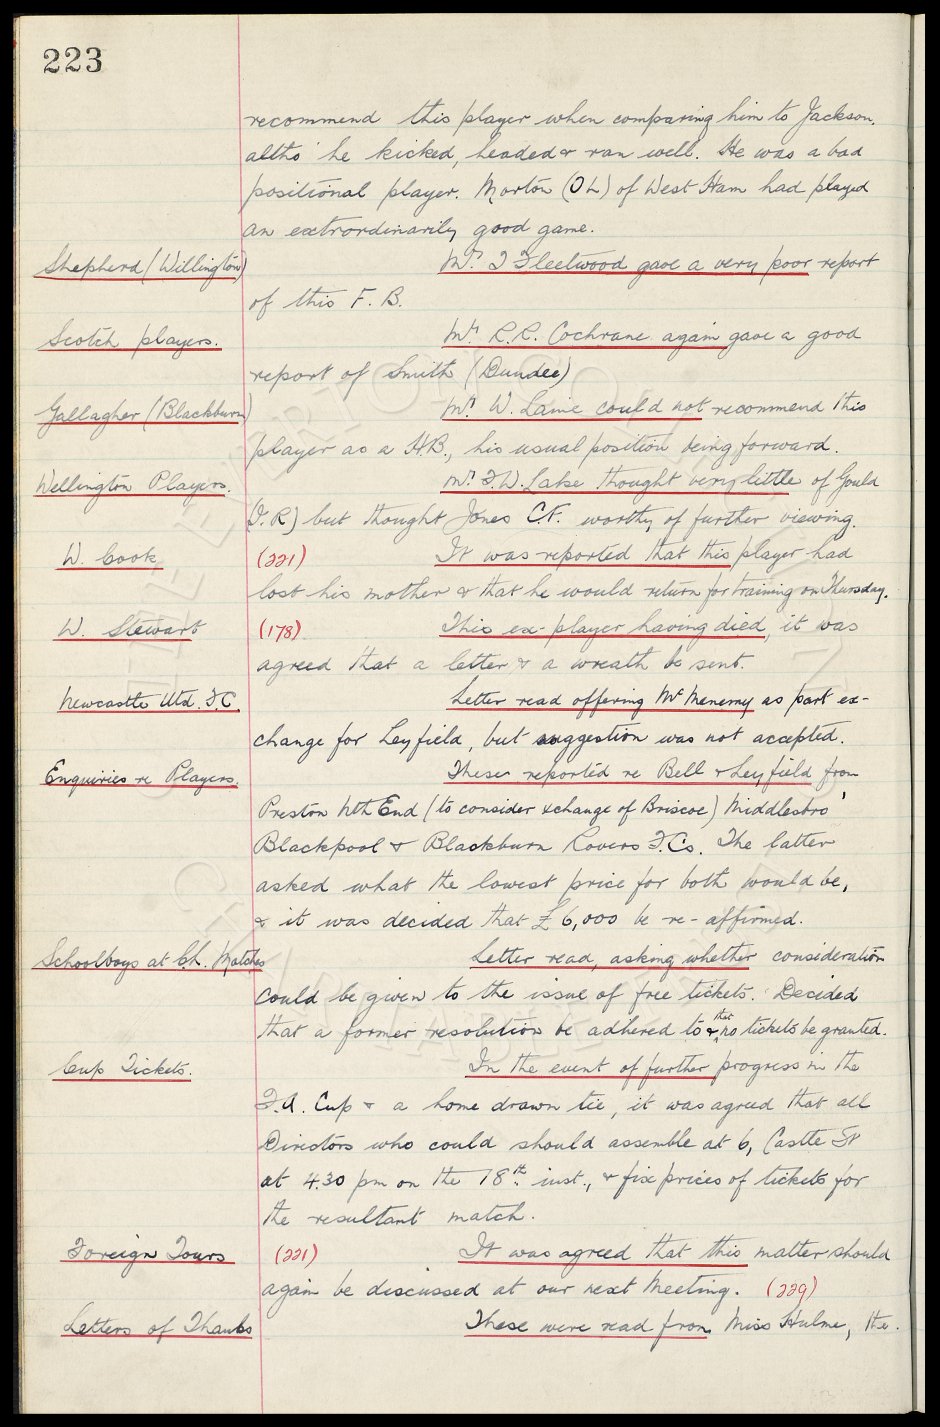 223
recommend this player when comparing him to Jackson.
altho' he kicked, headed & ran well. He was a bad
positional player. Morton (OL) of West Ham had played
an extrordinarily good game.
Shepherd (Willington) Mr. J Fleetwood gave a very poor report
of this F.B.
Scotch players. Mr R.R. Cochrane again gave a good
report of Smith (Dundee)
Gallagher (Blackburn) Mr. W. Laine could not recommend this
player as a H.B., his usual position being forward.
Wellington Players. Mr. F.W. Lake thought very little of Gould
(I.R) but thought Jones C.F. worthy of further viewing.
W. Cook (221) It was reported that this player had
lost his mother & that he would return for training on Thursday.
W. Stewart (178) This ex-player having died, it was
agreed that a letter & a wreath be sent.
Newcastle Utd. F.C. Letter read offering McMenemy as part ex-
change for Leyfield, but suggestion was not accepted.
Enquiries re Players. These reported re Bell & Leyfield from
Preston Nth End (to consider xchange of Briscoe) Middlesbro'
Blackpool & Blackburn Rovers F.Cs. The latter
asked what the lowest price for both would be,
& it was decided that £6,000 be re-affirmed.
Schoolboys at Ch. Matches Letter read, asking whether consideration
could be given to the issue of free tickets. Decided
that a former resolution be adhered to & that no tickets be granted.
Cup Tickets. In the event of further progress in the
F.A. Cup & a home drawn tie, it was agreed that all
Directors who could should assemble at 6, Castle St
at 4.30 pm on the 18th inst., & fix prices of tickets for
the resultant match.
Foreign Tours (221) It was agreed that this matter should
again be discussed at our next Meeting. (229)
Letters of Thanks These were read from Miss Hulme, the